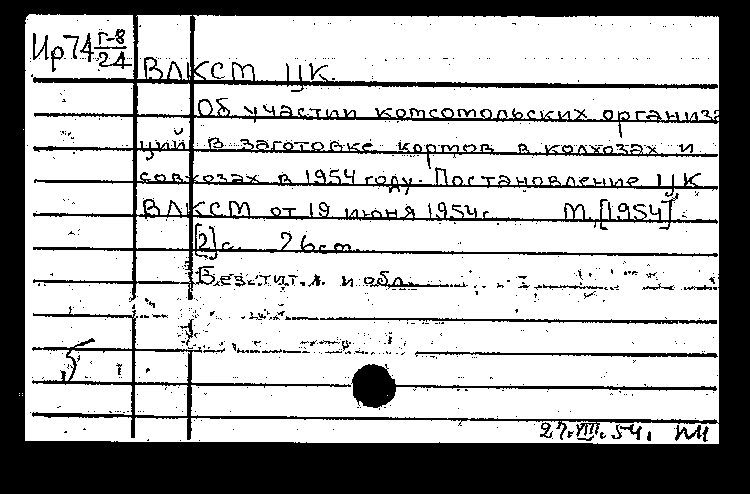 Ир74 Г-8/24
ВЛКСМ ЦК.
Об участии комсомольских организа
ций в заготовке кормов в колхозах и
совхозах в 1954 году. Постановление ЦК
ВЛКСМ от 19 июня 1954г. М., [1954]
[2] с. 26см.
Без тит. л. и обл.
5
27.VIII.54.